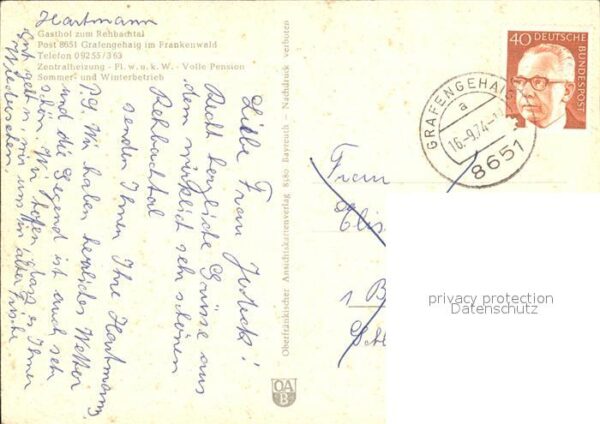 Hartmann
Gasthof zum Rehbachtal
Post 8651 Grafengehaig im Frankenwald
Telefon 09255/363
Zentralheizung - Fl. w. u. k. W. - Volle Pension
Sommer- und Winterbetrieb
Liebe Frau
Recht herzliche Grüsse aus
dem wirklich sehr schönen
Rehbachtal
senden Ihnen Ihre Hartmanns
Wir haben herrliches Wetter
und die Gegend ist auch sehr
schön. Wir hoffen, dass es Ihnen
gut geht
Wiedersehen.
Oberfränkischer Ansichtskartenverlag 8580 Bayreuth - Nachdruck verboten
OA
B
40 DEUTSCHE
BUNDESPOST
GRAFENGEHAIG
a
16.-9.74
8651
Frau
Elis
1 B
privacy protection
Datenschutz